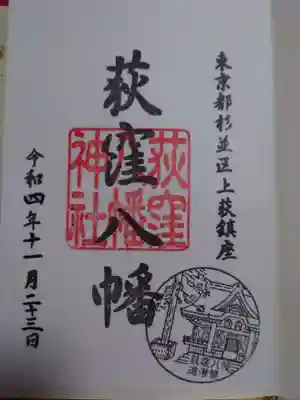 東京都杉並区上荻鎮座
荻窪八幡
荻窪
八幡
神社
令和四年十一月二十三日
荻窪八幡